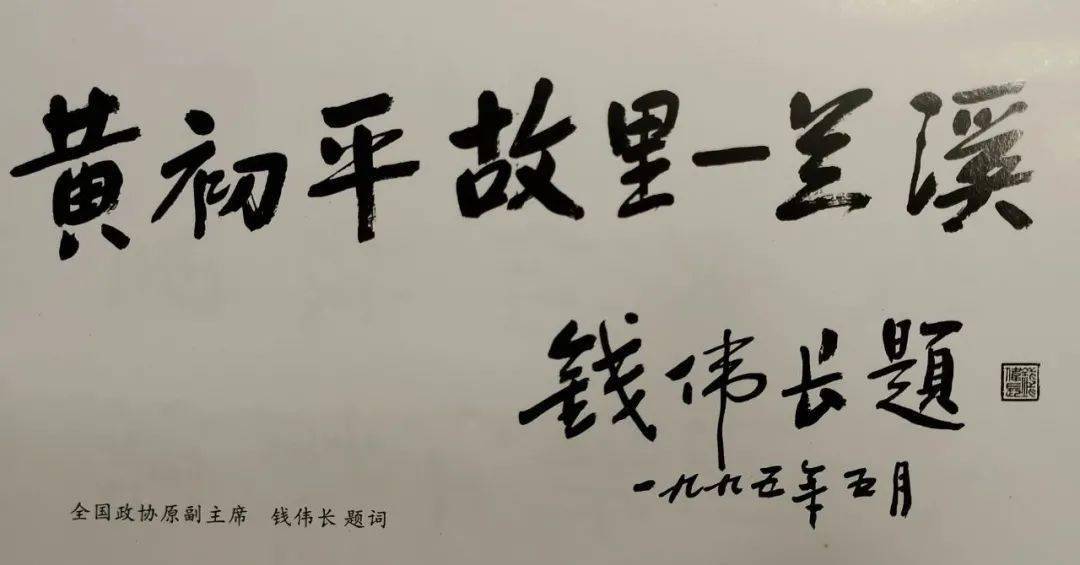 黄初平故里一兰溪
錢伟长題
一九九五年五月
全国政协原副主席 钱伟长 题词